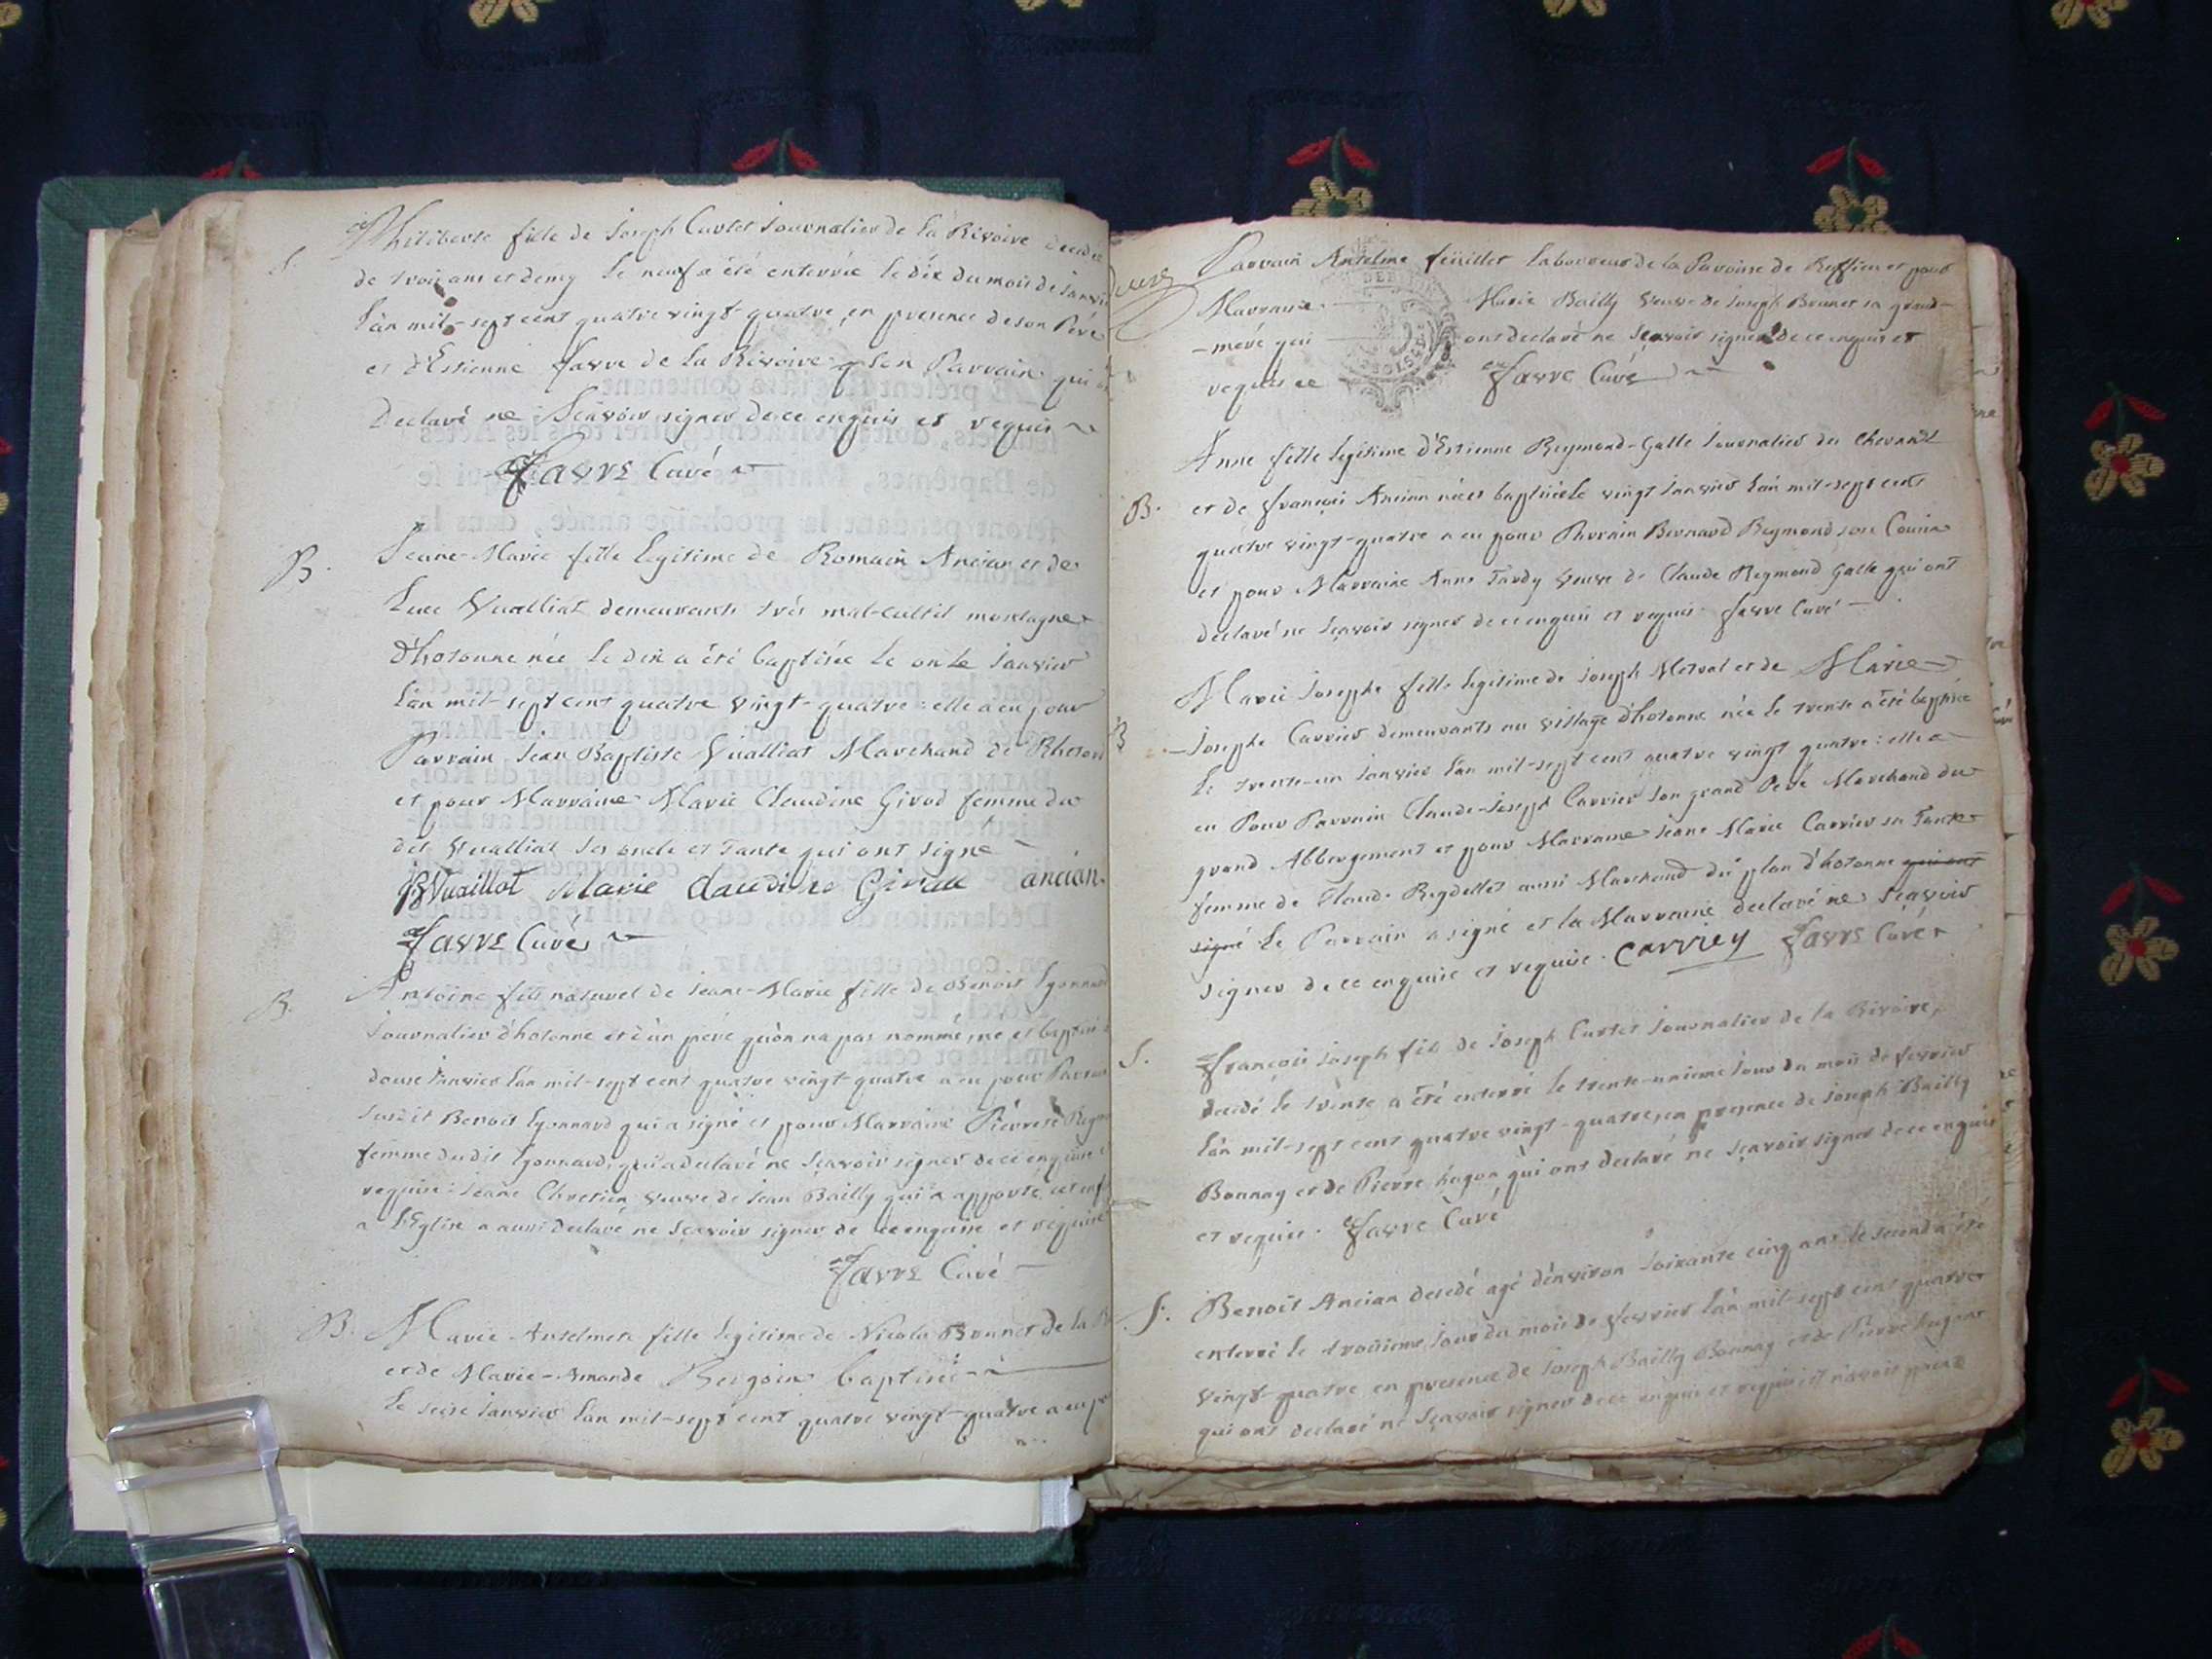 S.
Philiberte fille de Joseph Curtet Journalier de la Rivoire decedée
de trois ans et demy le neuf a été enterrée le dix du mois de Janvier
L'an mil-sept cent quatre vingt-quatre, en presence de son Pere
et d'Estienne favre de la Rivoire son Parrain qui ont
Declaré ne Sçavoir signer de ce enquis et requis
favre Curé
B.
Jeane-Marie fille legitime de Romain Ancian et de
Luce Vualliat demeurants très mal-cultil montagne
d'hotonne née le dix a été baptisée le onze Janvier
L'an mil-sept cent quatre vingt-quatre : elle a eu pour
Parrain Jean Baptiste Vualliat Marchand de
et pour Marraine Marie Claudine Girod femme du
dit Vualliat ses oncle et Tante qui ont signé
JB Vuaillat Marie Claudine Girau ancian
favre Curé
B.
Antoine fils naturel de Jeane-Marie fille de Benoit Lyonnard
Journalier d'hotonne et d'un pere qu'on na pas nommé, né et baptisé
douse Janvier L'an mil-sept cent quatre vingt-quatre a eu pour Parrain
susdit Benoit Lyonnard qui a signé et pour Marraine Pierrete
femme dudit Lyonnard, qui a declaré ne sçavoir signer de ce enquise
requise : Jeane Chretien veuve de Jean Bailly qui a apporté cet enf
a L'Eglise a aussi declaré ne sçavoir signer de ce enquise et requise
favre Curé
B.
Marie-Anselmete fille legitime de Nicolas Brunet de la
et de Marie-Amande baptisée
le seise Janvier L'an mil-sept cent quatre vingt-quatre a eu p
Parrain Anselme feüillet Laboureur de la Paroisse de Ruffieu et pour
Marraine Marie Bailly veuve de Joseph Brunet sa grand-
-mere qui ont declaré ne sçavoir signer de ce enquis et
requis favre Curé
B.
Anne fille legitime d'Estienne Reymond-Galle Journalier du
et de françoise Ancian née et baptisée le vingt Janvier L'an mil-sept cent
quatre vingt-quatre a eu pour Parrain Bernard Reymond son Cousin
et pour Marraine Anne Tardy veuve de Claude Reymond Galle qui ont
declaré ne sçavoir signer de ce enquis et requis. favre Curé
B
Marie Josephe fille legitime de Joseph Metral et de Marie
Josephe Carrier demeurants au village d'hotonne née le trente a été baptisée
le trente-un Janvier L'an mil-sept cent quatre vingt quatre : elle a
eu Pour Parrain Claude-Joseph Carrier son grand Pere Marchand du
grand Abbergement et pour Marraine Jeane Marie Carrier sa Tante
femme de Claude aussi Marchand du plan d'hotonne qui ont
signé le Parrain a signé et la Marraine declaré ne sçavoir
signer de ce enquise et requise. Carrier favre Curé
S.
françois Joseph fils de Joseph Curtet Journalier de la Rivoire,
decedé le trente a été enterré le trente-unieme Jour du mois de
L'an mil-sept cent quatre vingt-quatre, en presence de Joseph Bailly
Bonnay et de Pierre hugon qui ont declaré ne sçavoir signer de ce enquis
et requis. favre Curé
S.
Benoit Ancian decedé agé d'environ soixante cinq ans le second a été
enterré le troisieme Jour du mois de fevrier L'an mil-sept cent quatre
vingt-quatre en presence de Joseph Bailly Bonnay et de Pierre hugon
qui ont declaré ne sçavoir signer de ce enquis et requis